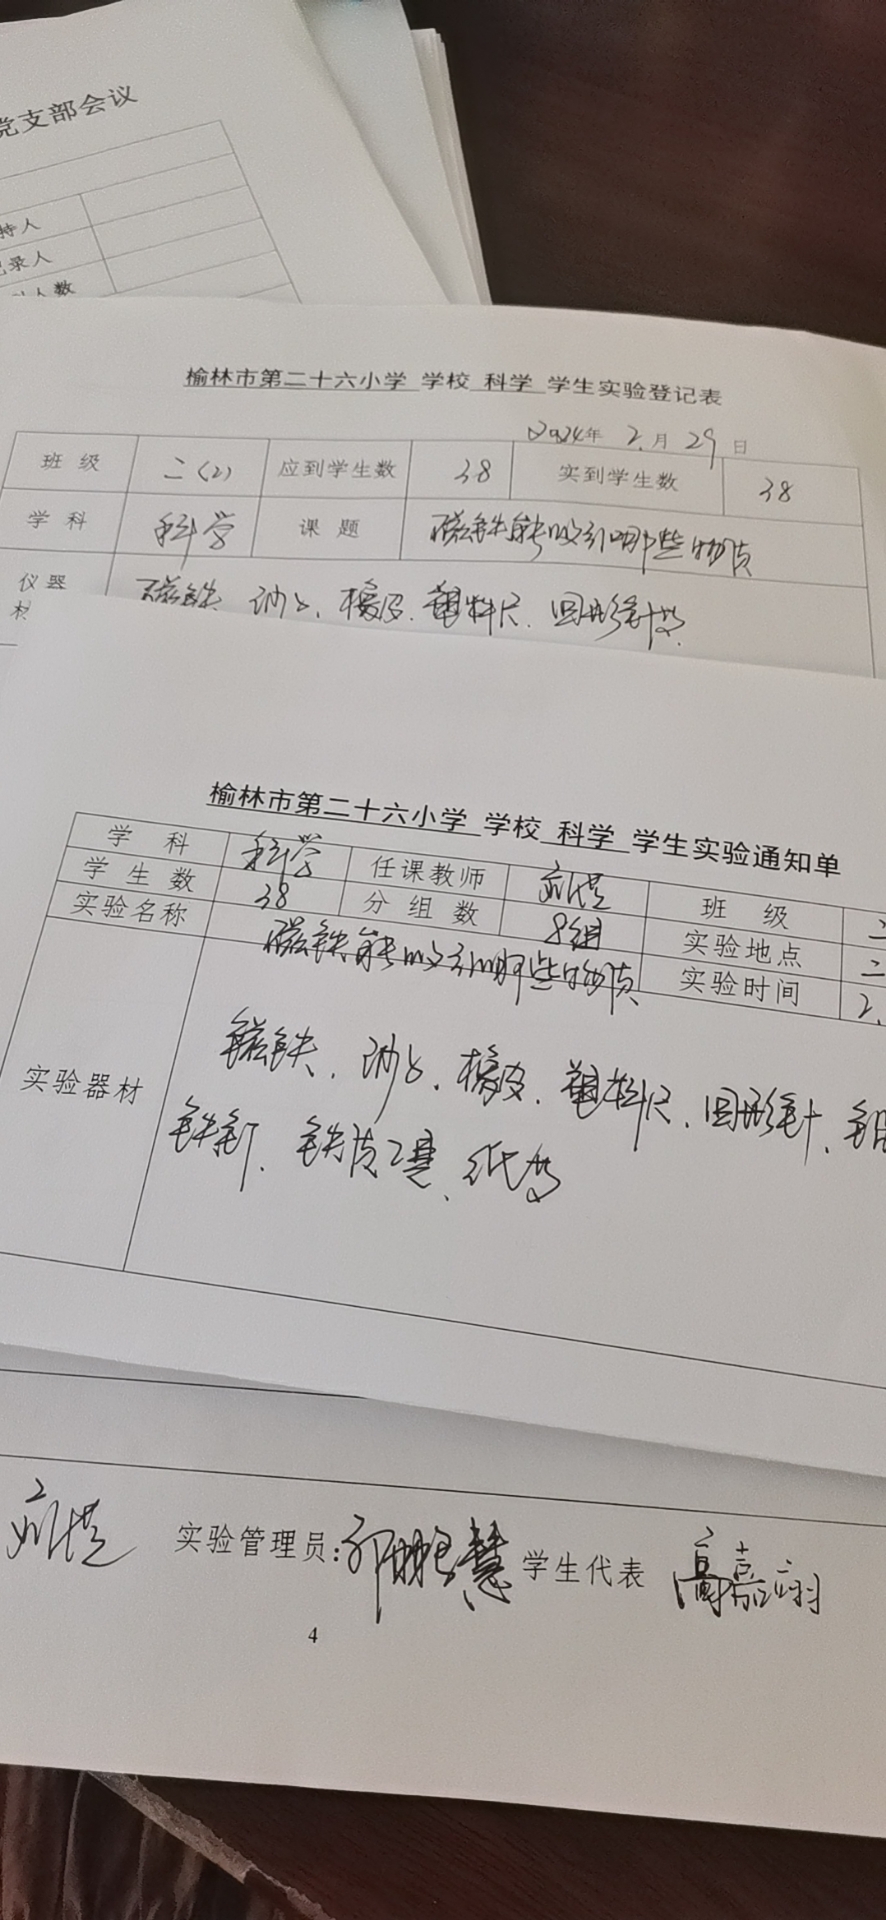 党支部会议
持人
记录人
人数
榆林市第二十六小学 学校 科学 学生实验登记表
2024年 2月 29日
班 级 二(2) 应到学生数 38 实到学生数 38
学 科 科学 课 题 磁铁能吸引哪些物质
仪器 磁铁、沙子、橡皮、塑料尺、回形针等
材
榆林市第二十六小学 学校 科学 学生实验通知单
学 科 科学 任课教师 班 级 二
学 生 数 38 分 组 数 8组 实验地点 二
实验名称 磁铁能吸引哪些物质 实验时间 2.
实验器材 磁铁、沙子、橡皮、塑料尺、回形针、
铁钉、铁质 、纸等
实验管理员: 学生代表 高嘉翊
4